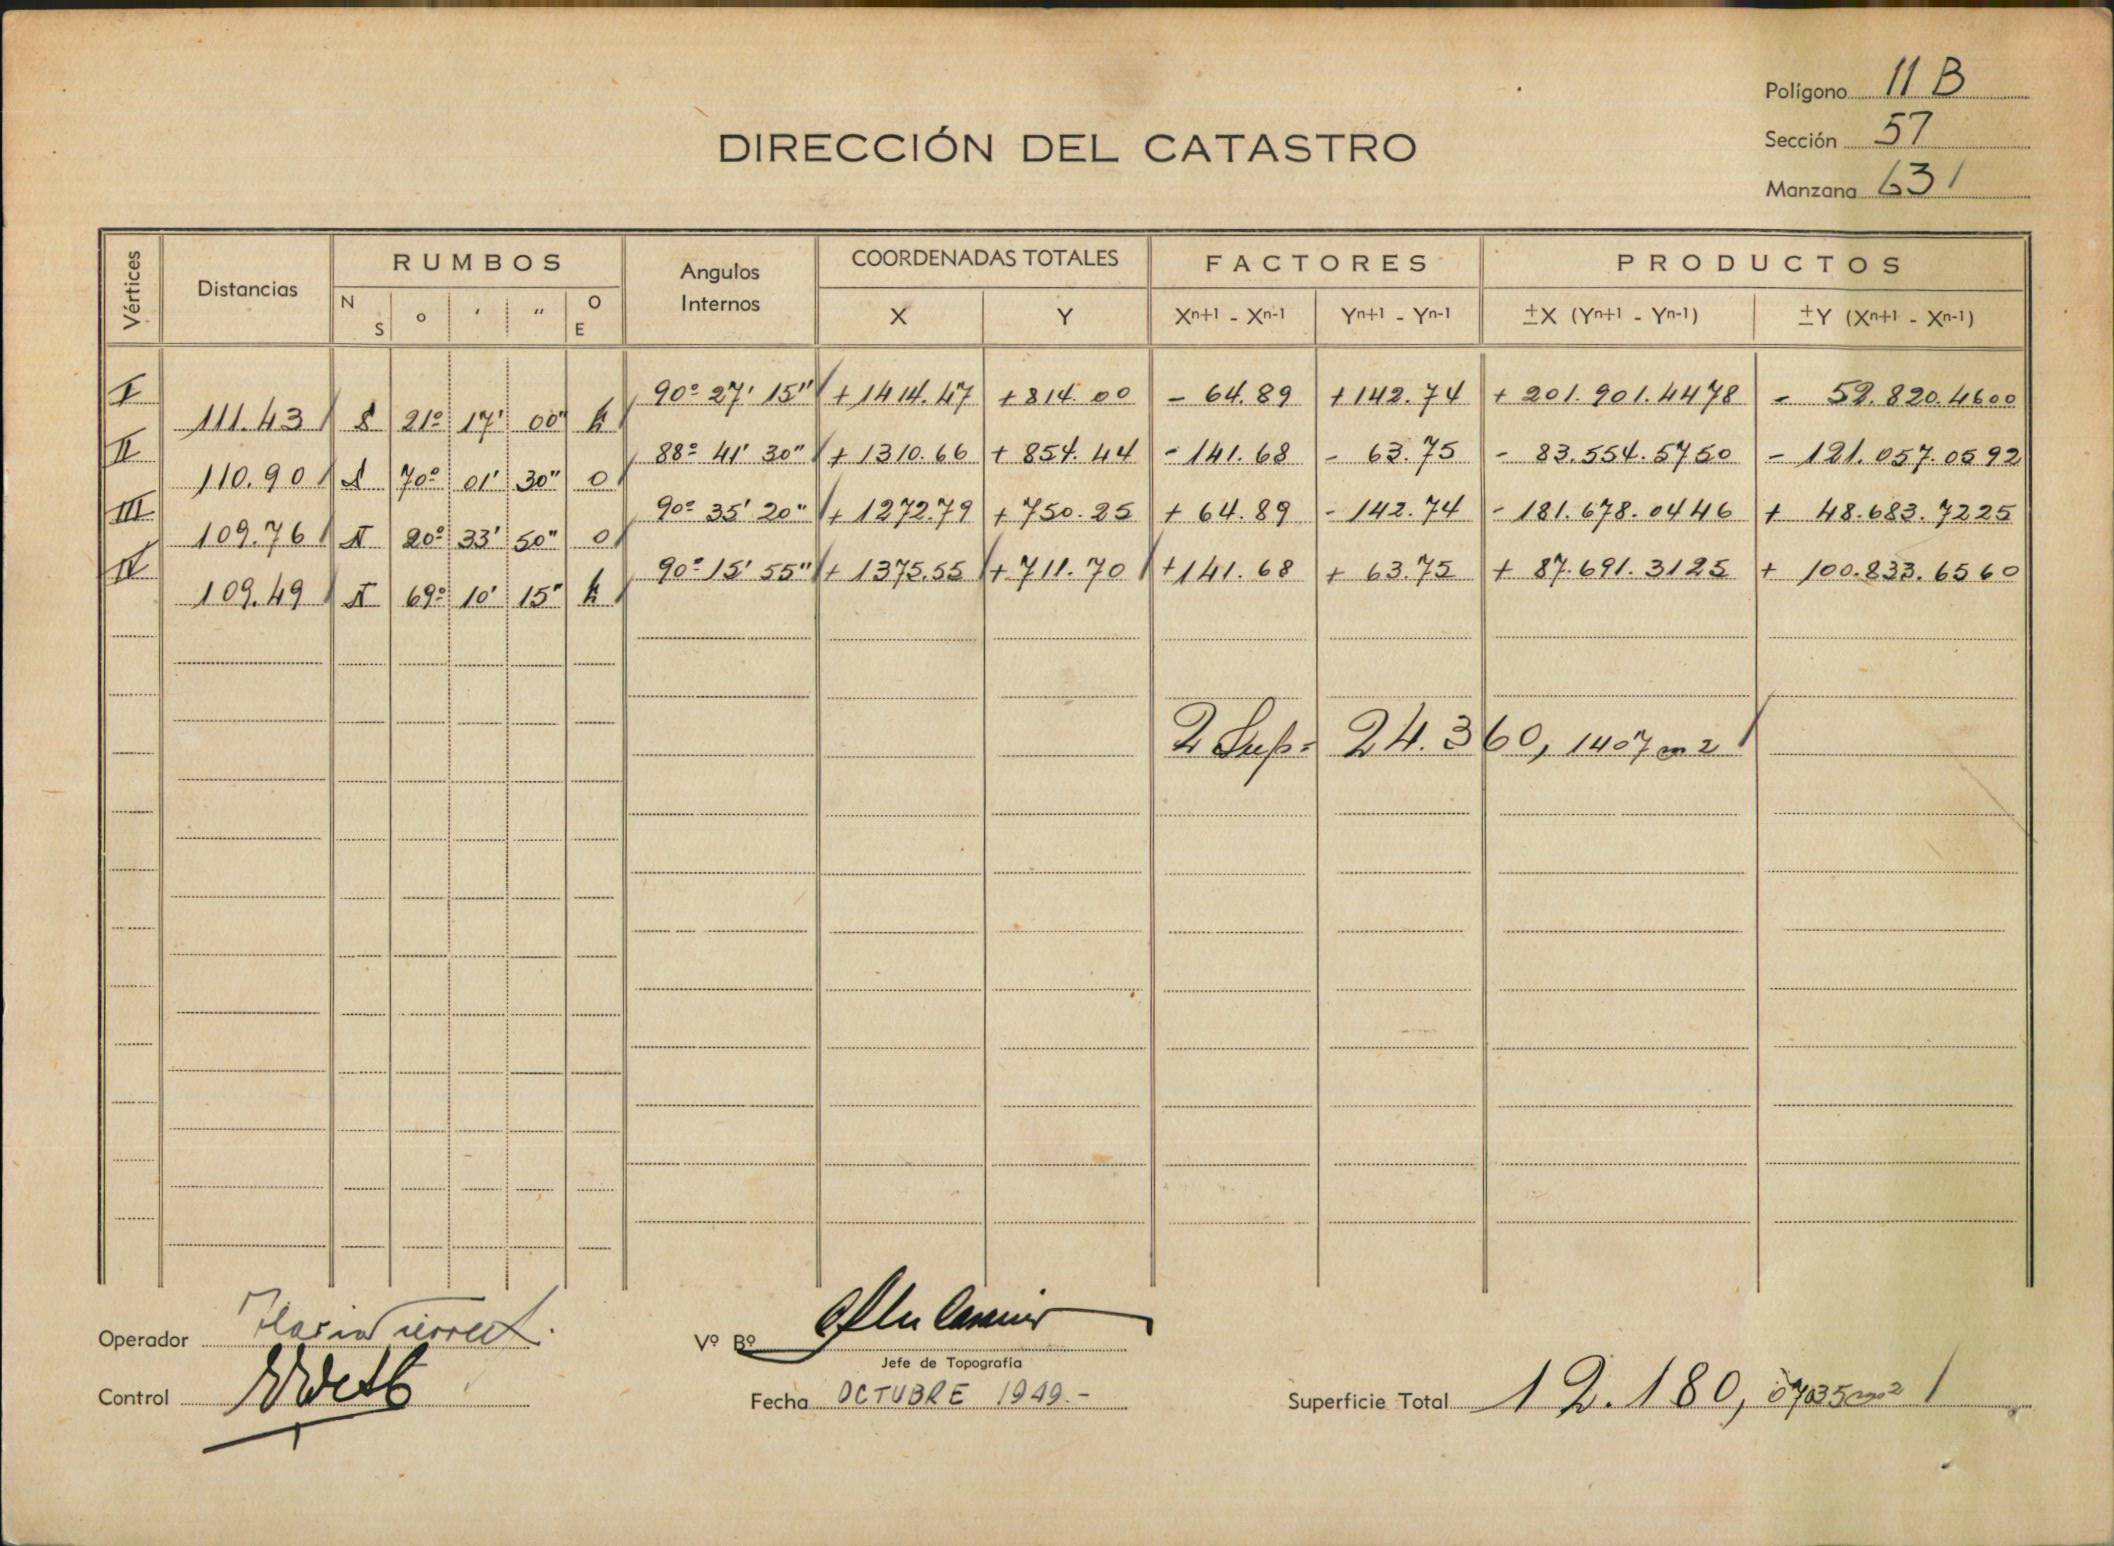 Polígono 11 B
Sección 57
Manzana 631
DIRECCIÓN DEL CATASTRO
Vértices Distancias RUMBOS Angulos Internos COORDENADAS TOTALES FACTORES PRODUCTOS
N S o ' " O E X Y Xn+1 - Xn-1 Yn+1 - Yn-1 ±X (Yn+1 - Yn-1) ±Y (Xn+1 - Xn-1)
I 90º 27' 15" + 1414.47 + 814.00 - 64.89 + 142.74 + 201.901.4478 - 52.820.4600
111.43 S 21º 17' 00" E
II 88º 41' 30" + 1310.66 + 854.44 - 141.68 - 63.75 - 83.554.5750 - 121.057.0592
110.90 S 70º 01' 30" O
III 90º 35' 20" + 1272.79 + 750.25 + 64.89 - 142.74 - 181.678.0446 + 48.683.7225
109.76 N 20º 33' 50" O
IV 90º 15' 55" + 1375.55 + 711.70 + 141.68 + 63.75 + 87.691.3125 + 100.833.6560
109.49 N 69º 10' 15" E
2 Sup= 24.360, 1407 m2
Operador
Vº Bº
Jefe de Topografía
Control
Fecha OCTUBRE 1949.-
Superficie Total 12.180, 07035 m2